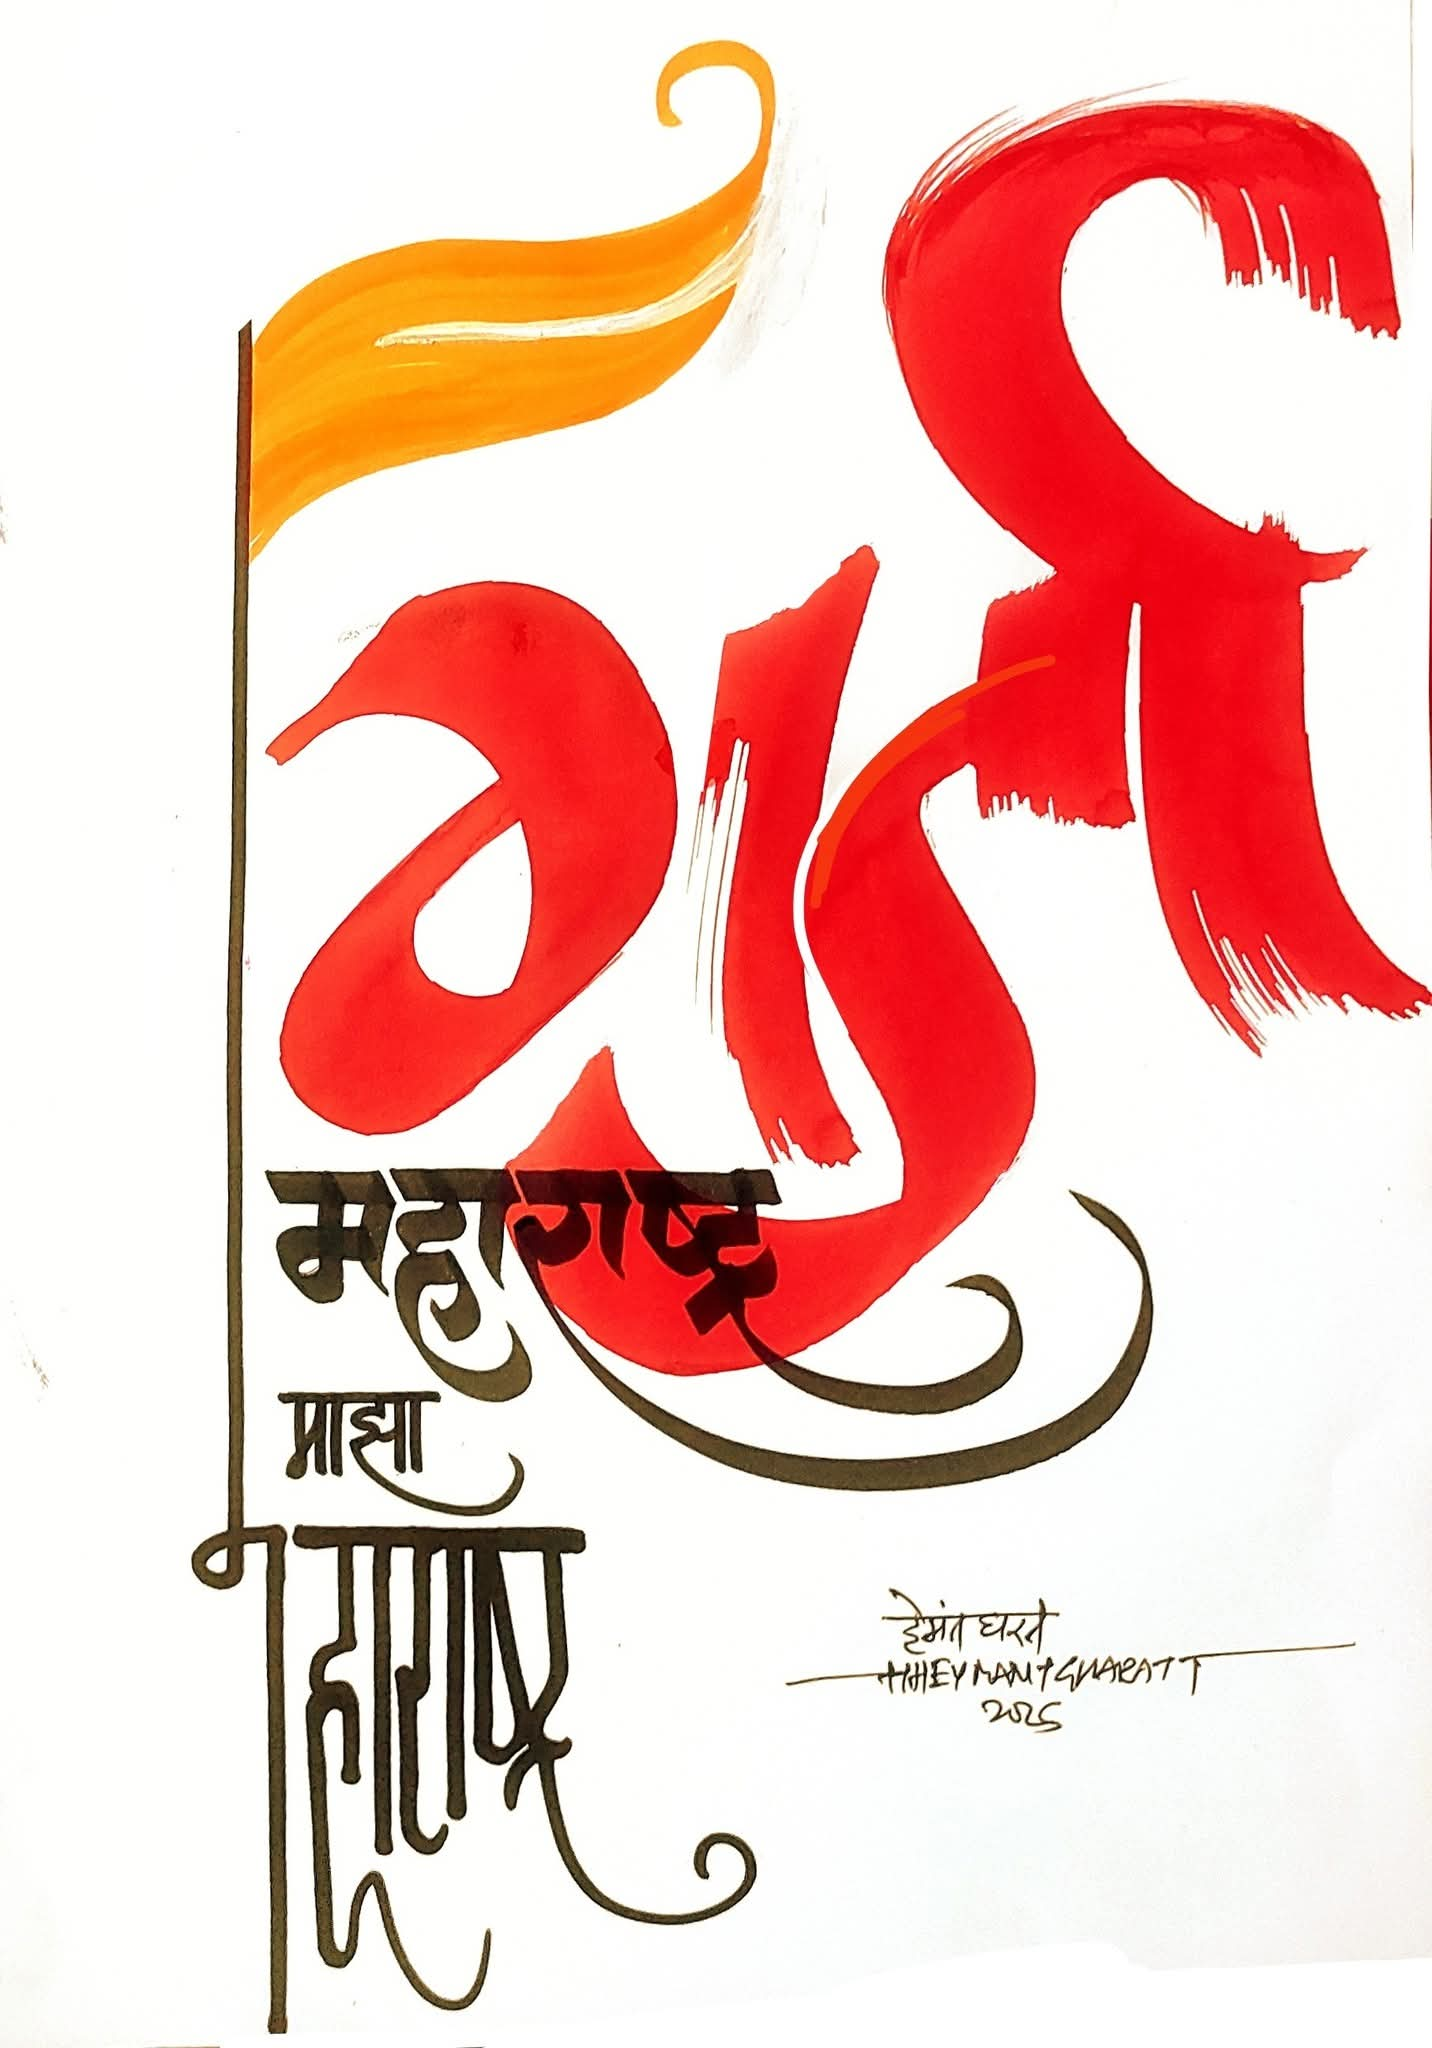 गर्जा
महाराष्ट्र
माझा
महाराष्ट्र
हेमंत घरत
HHEYMANT GHARATT
2025